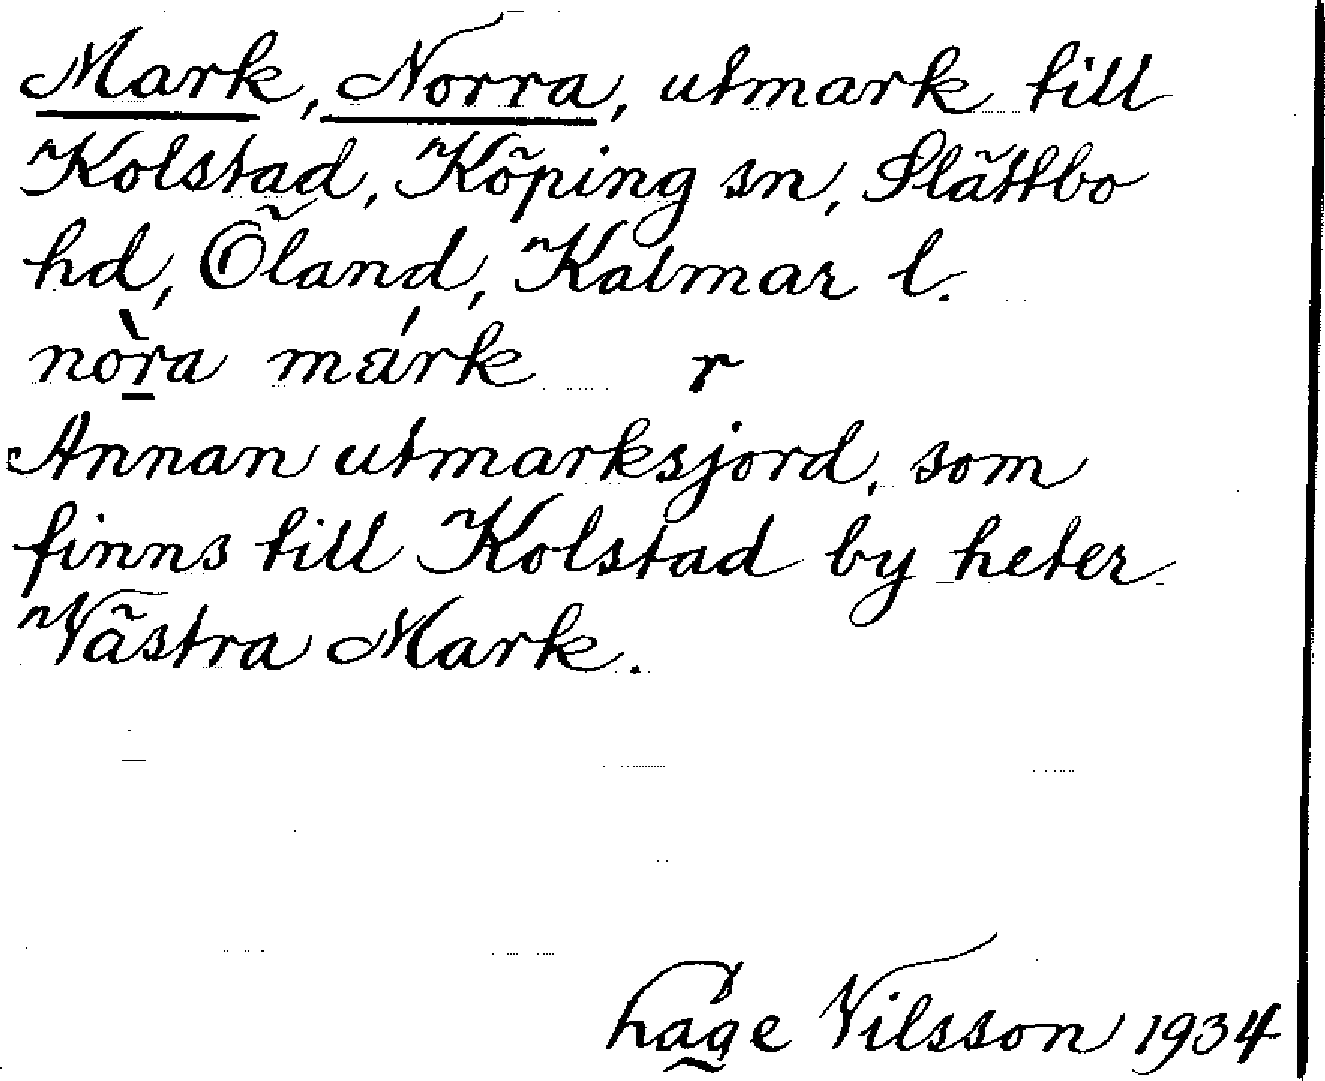 Mark, Norra, utmark till
Kolstad, Köping sn, Slättbo
hd, Öland, Kalmar l.
nòra márk r
Annan utmarksjord, som
finns till Kolstad by heter
Västra Mark.
Håge Nilsson 1934